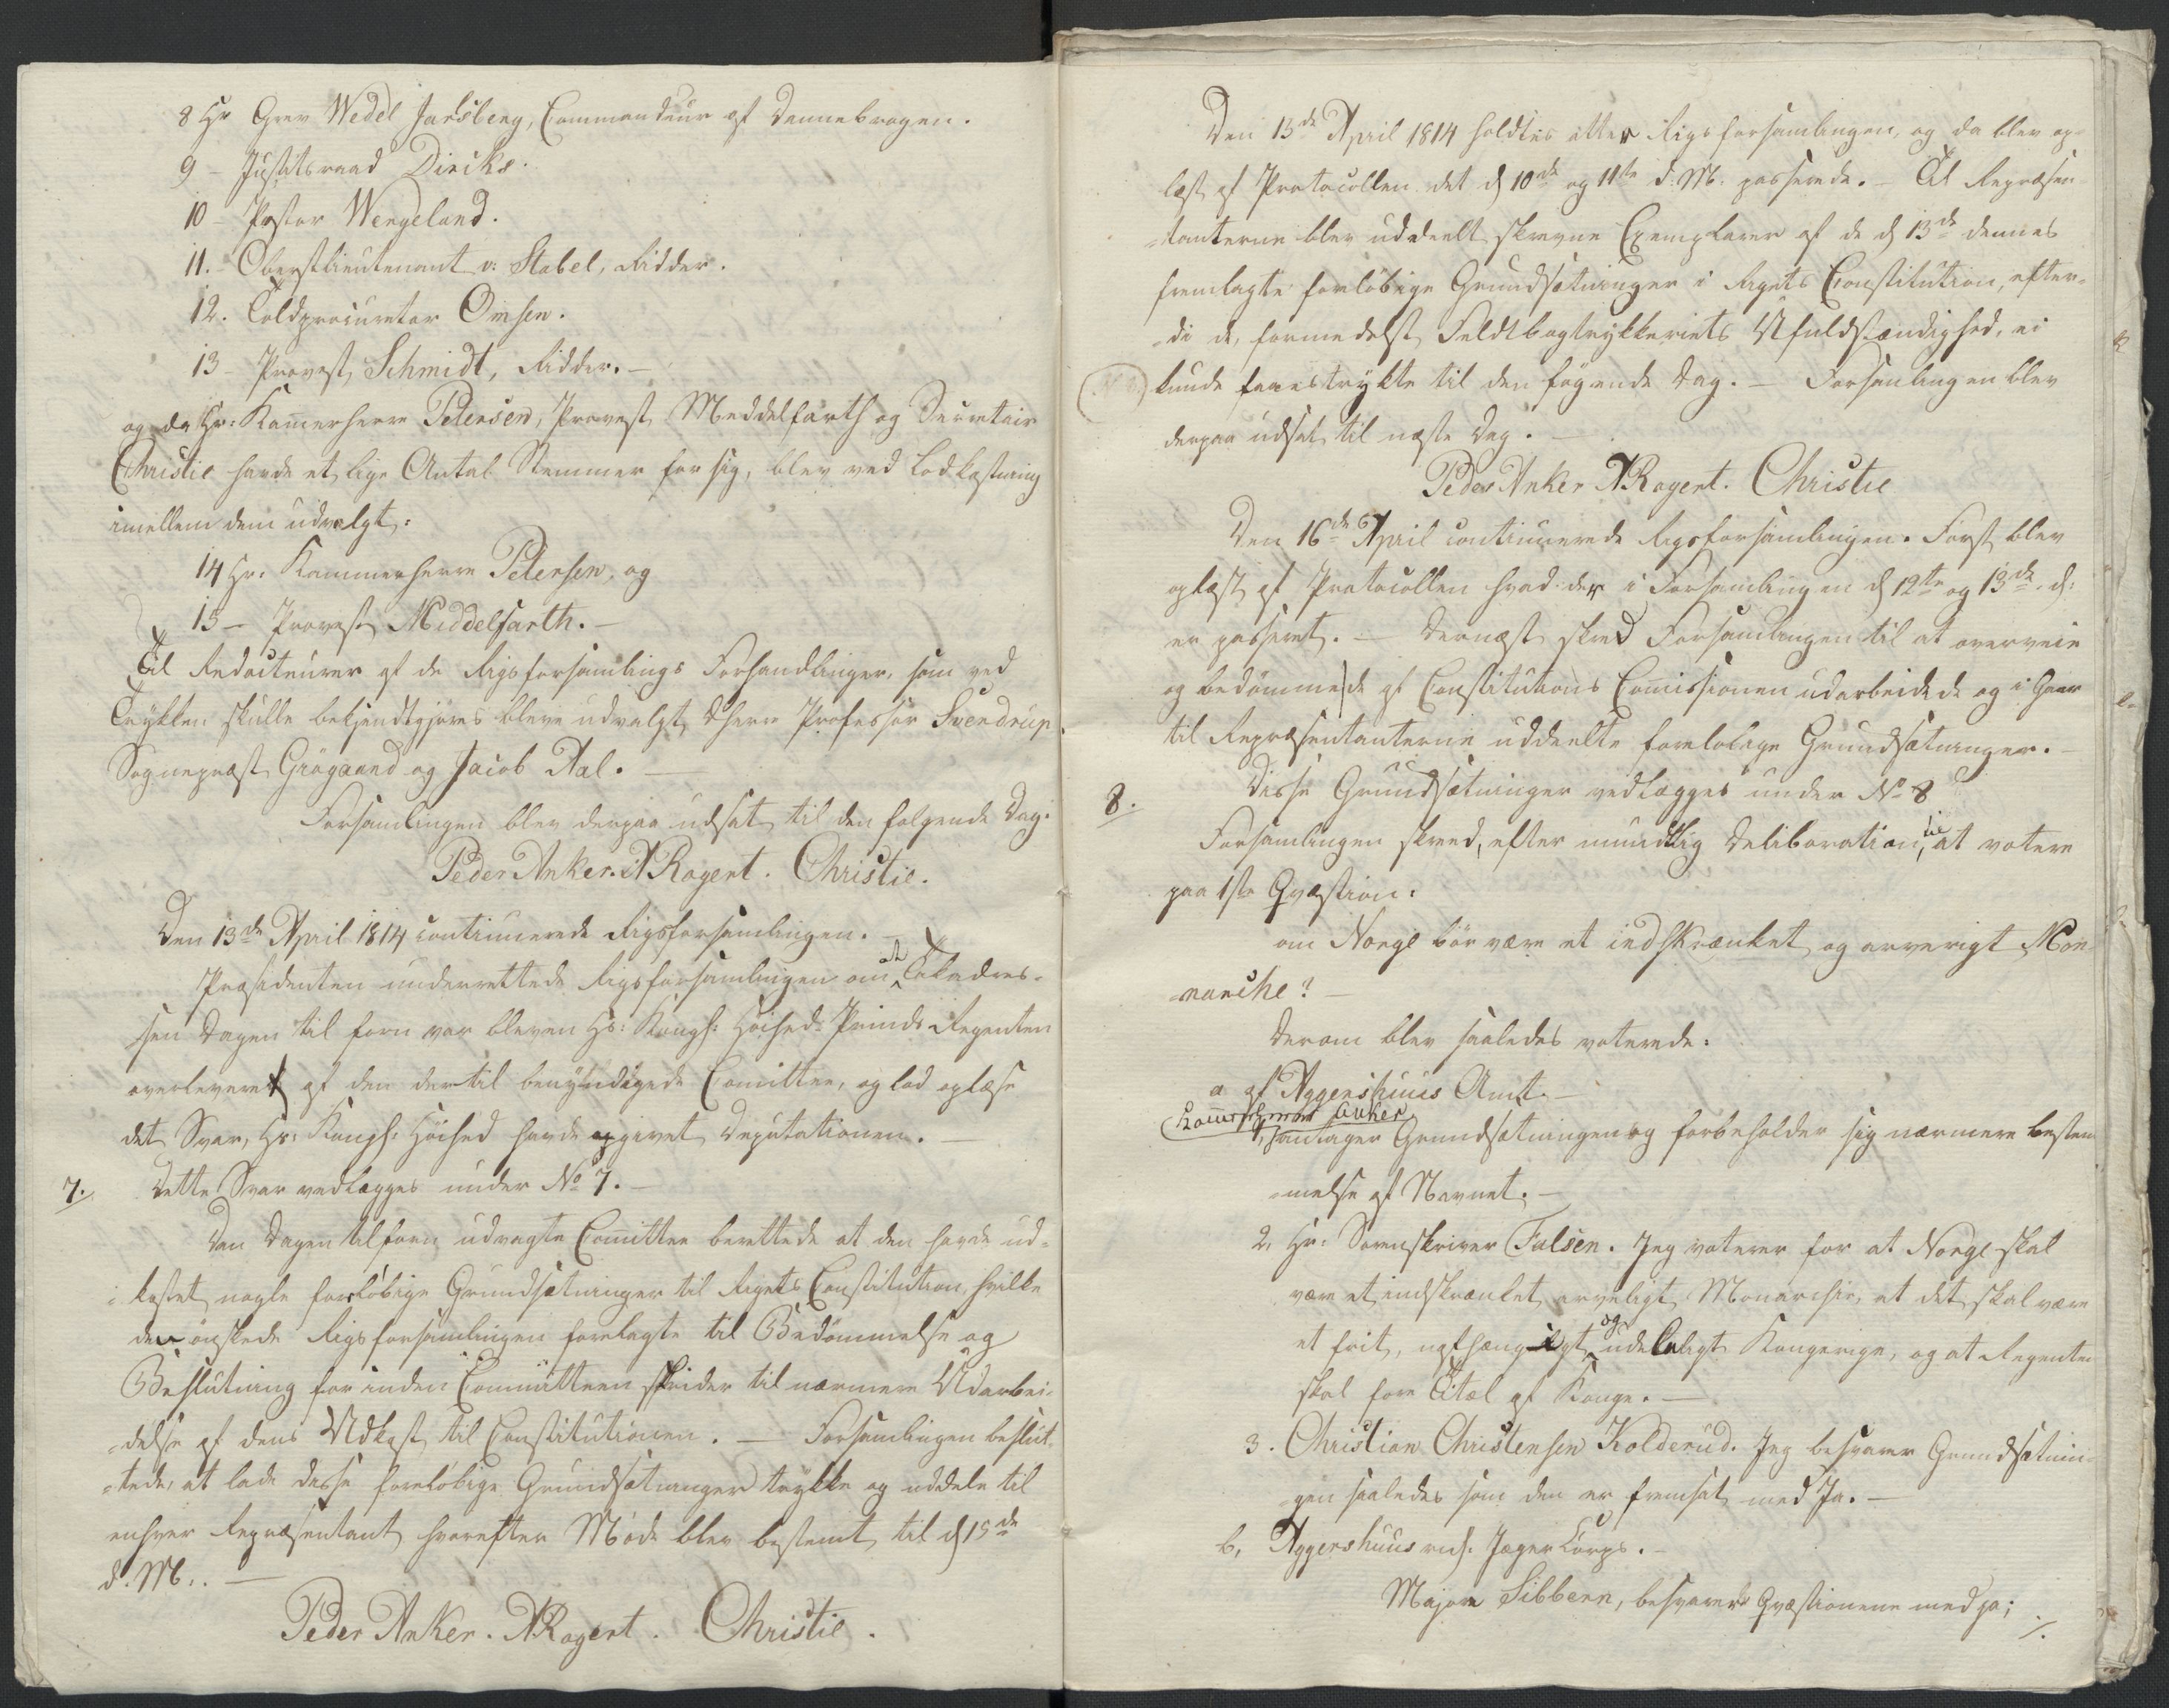 8 Hr Grev Wedel Jarlsberg, Commandeur af Dannebrogen.
9 – Justitsraad Diriks.
10 – Pastor Wergeland.
11. – Oberstlieutenant v: Stabel, Ridder.
12. Toldprocurator Omsen.
13 – Provst Schmidt, Ridder. –
og da Hr: Kam̄erherre Petersen, Provst Meddelfarth og Secretair
Christie havde et lige Antal Stemmer for sig, blev ved Lodkastning
imellem dem udvalgt:
14 Hr: Kammerherre Petersen, og
15 – Provst Middelfarth. –
Til Redacteurer af de Rigsforsamlings Forhandlinger, som ved
Trykken skulle bekjendtgjøres bleve udvalgt Dherrer Professor Sverdrup
Sognepræst Grøgaard og Jacob Aal. –
Forsamlingen blev derpaa udsat til den følgende Dag.
Peder Anker. ARogert. Christie.
Den 13de April 1814 continuerede Rigsforsamlingen. –
Præsidenten underrettede Rigsforsamlingen om at Takadres-
sen Dagen til forn var bleven Hs: Kongl: Høihed Prinds Regenten
overleveret af den dertil bemyndigede Comittee, og lod oplæse
det Svar, Hs: Kongl: Høihed havde givet Deputationen. –
7. Dette Svar vedlægges under No 7. –
Den Dagen tilforn udvalgte Com̄ittee berettede at den havde ud-
-kastet nogle foreløbige Grundsætninger til Rigets Constitution, hvilke
den ønskede Rigsforsamlingen forelagte til Bedømmelse og
Beslutning for inden Committeen skrider til nærmere Udarbei-
-delse af dens Udkast til Constitutionen. – Forsamlingen beslut-
-tede, at lade disse foreløbige Grundsætninger trykke og uddele til
enhver Repræsentant hvorefter Møde blev bestemt til d 15de
d. M. –
Peder Anker. ARogert. Christie.
Den 15de April 1814 holdtes atter Rigsforsamlingen, og da blev op-
læst af Protocollen det d 10de og 11te d: M: passerede. – Til Repræsen-
-tanterne blev uddeelt skrevne Exemplarer af de d 13de dennes
fremlagte foreløbige Grundsætninger i Rigets Constitution, efter-
-di de, formedelst Feldtbogtrykkeriets Ufuldstændighed, ei
kunde faaes trykte til den føgende Dag. – Forsamlingen blev
derpaa udsat til næste Dag. –
Peder Anker ARogert. Christie
Den 16de April continuerede Rigsforsamlingen. Først blev
oplæst af Protocollen hvad der i Forsamlingen d 12te og 13de d:
er passeret. – Dernæst skred Forsamlingen til at overveie
og bedømme de af Constitutions Com̄issionen udarbeidede og i Gaar
til Repræsentanterne uddeelte foreløbige Grundsætninger. –
8. Disse Grundsætninger vedlægges under No 8
Forsamlingen skreed, efter mundtlig Deliberation, til at votere
paa 1ste Qvæstion:
om Norge bør være et indskrænket og arverigt Mon-
-narchie? –
Derom blev saaledes voterede.
a af Aggershuus Amt. –
Kam̄erherre Anker
1, antager Grundsætningen og forbeholder sig nærmere bestem
-melse af Navnet. –
2, Hr: Sorenskriver Falsen. Jeg voterer for at Norge skal
være et indskrænket arveligt Monarchie, at det skal være
et frit, uafhængigt og udeleligt Kongerige, og at Regenten
skal føre Titel af Konge. –
3. Christian Christensen Kolderud. Jeg besvarer Grundsætnin-
-gen saaledes som den er fremsat med Ja. –
b, Aggershuus rid. Jæger Corps. –
Major Sibbern, besvarer Qvæstionene med ja;